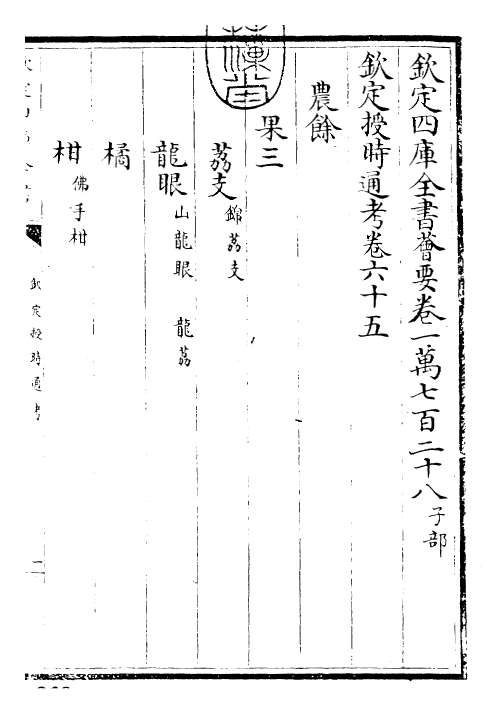 欽定四庫全書薈要卷一萬七百二十八子部
欽定授時通考卷六十五
農餘
果三
荔支錦荔支
龍眼山龍眼 龍荔
橘
柑佛手柑
欽定授時通考